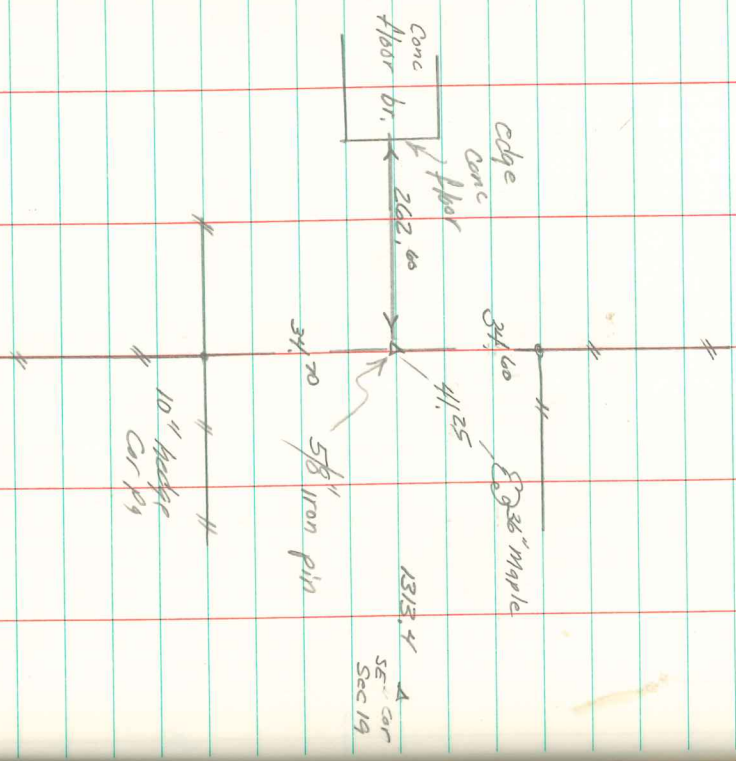 Conc
floor br.
edge
conc
floor
262.60
34.60
41.25
36" Maple
34.70
5/8"
iron pin
10" hedge
Cor
1313.4
SE Cor
Sec 19